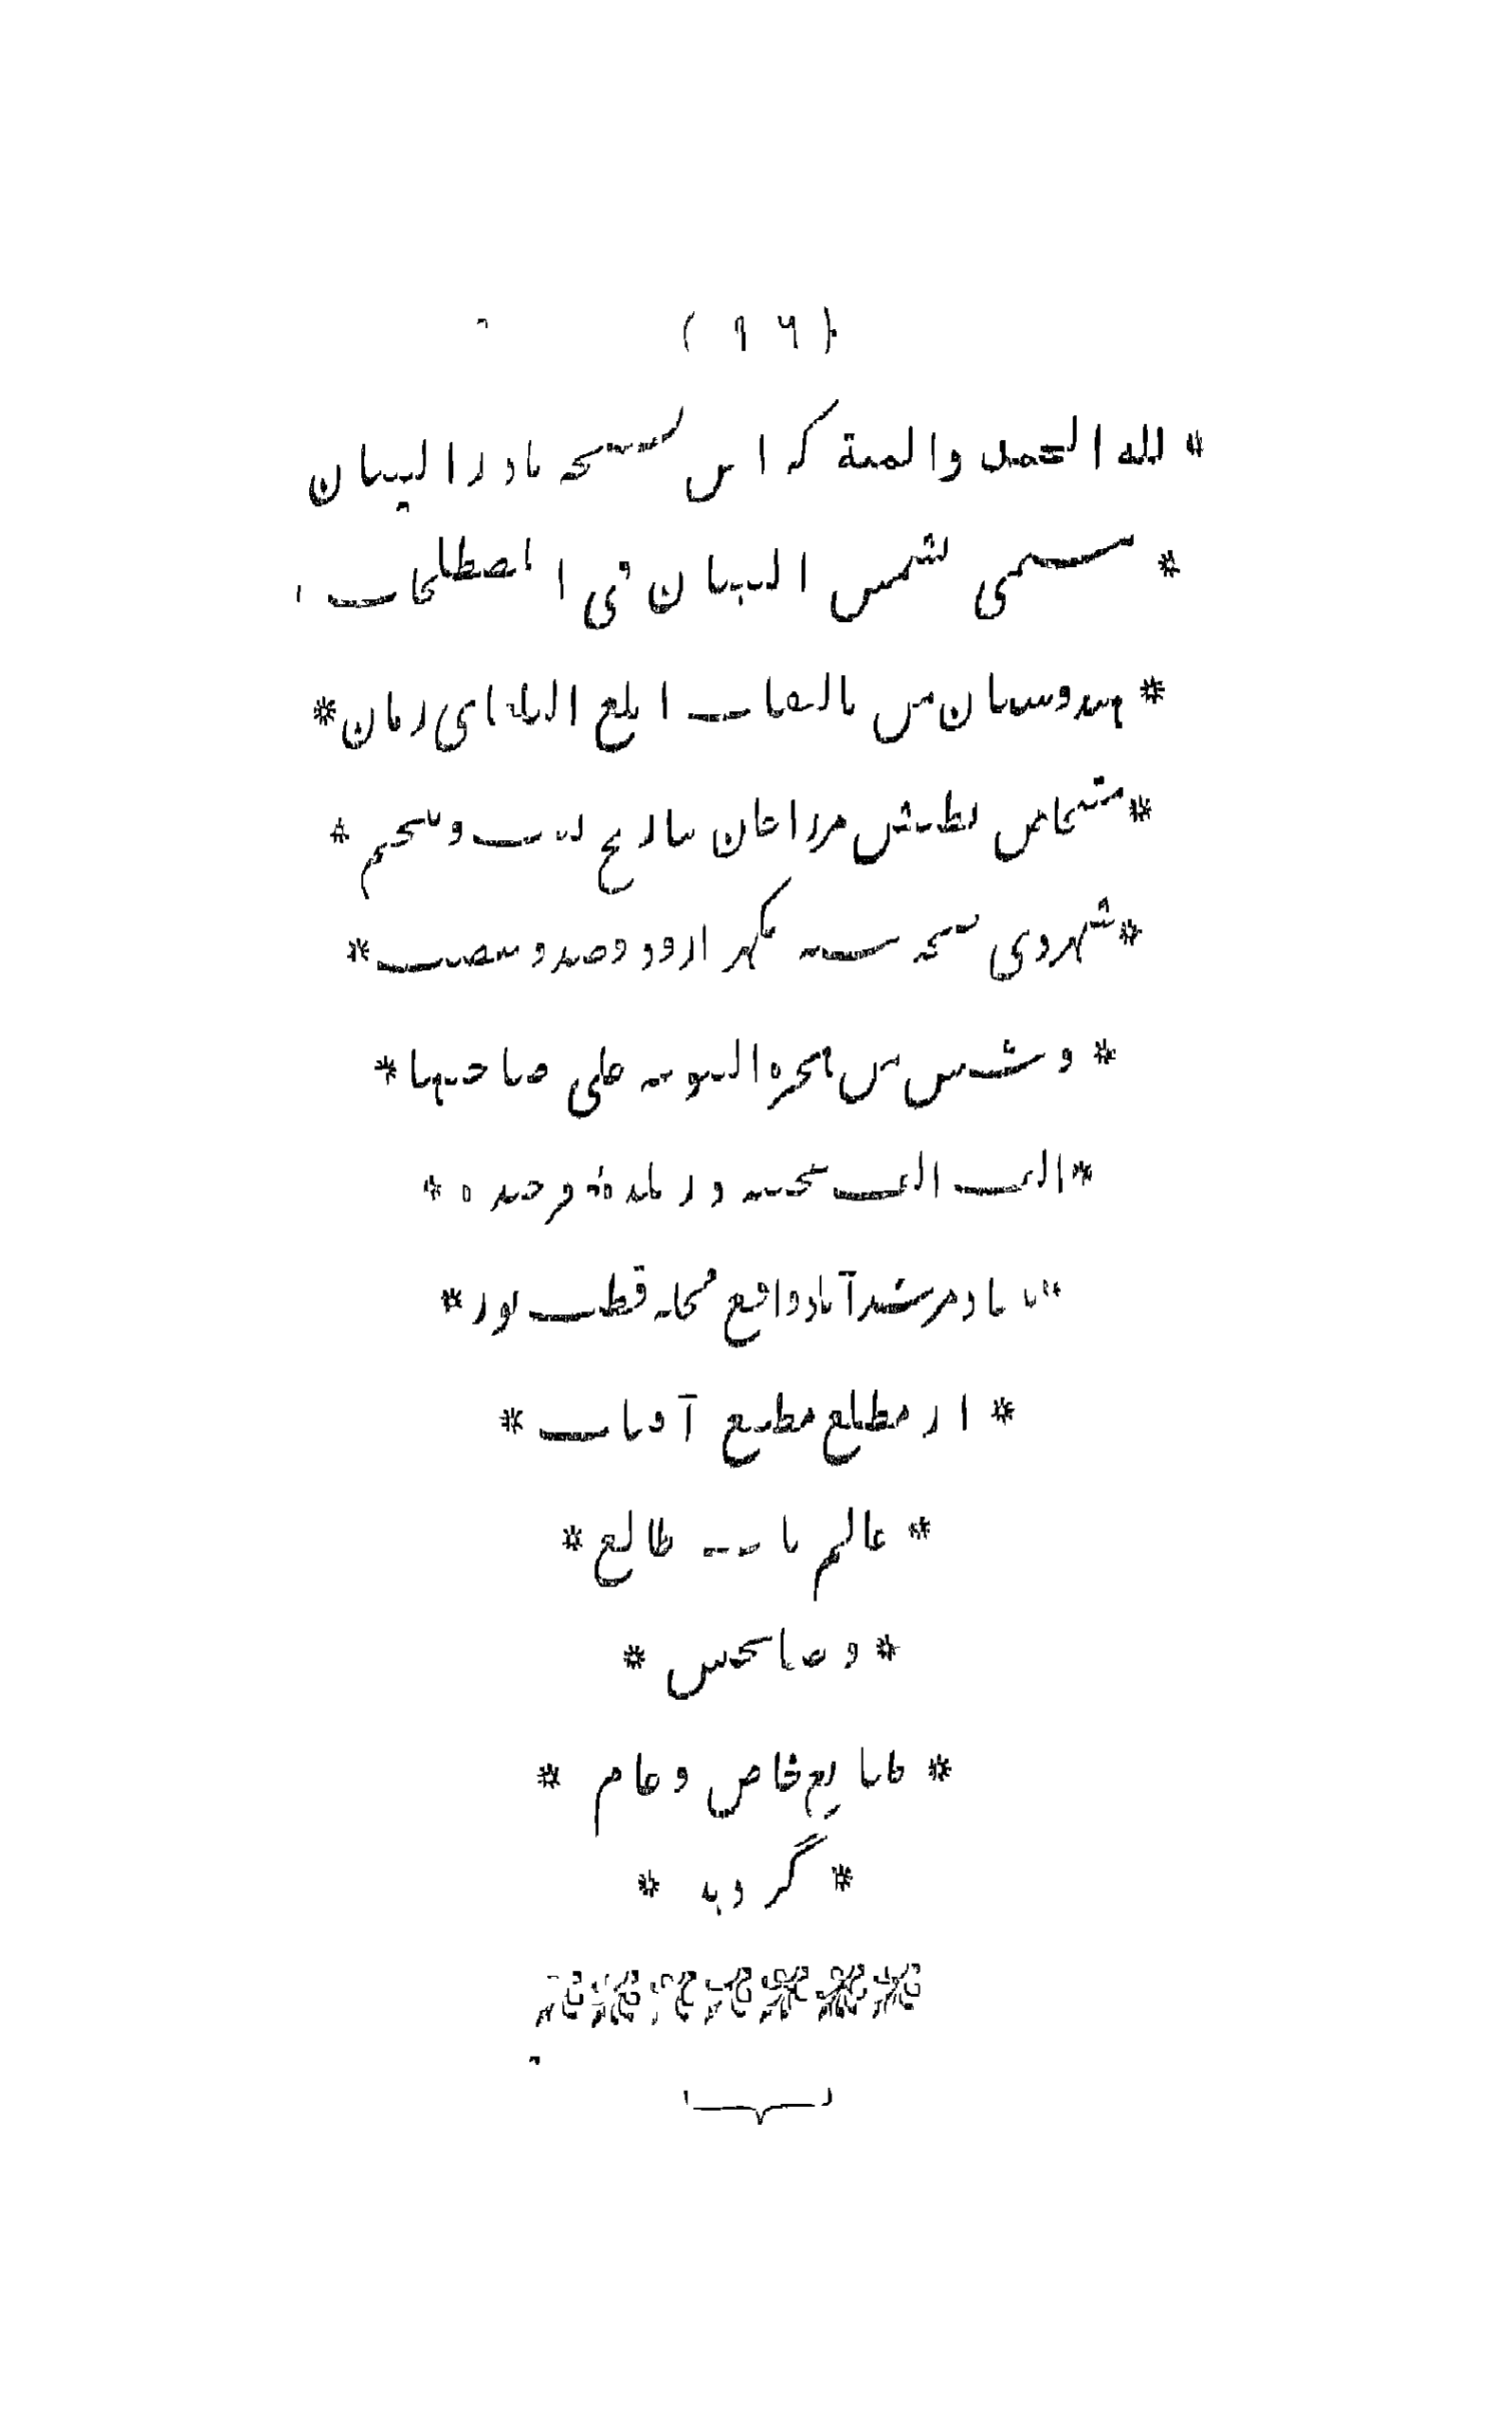 ( ۹۶ )
* لله الحمد والمنة که این نسخه نادر البیان
* مسمی بشمس البیان فی اصطلاحات
* هندوستان من تالیفات ابلغ البلغای زمان *
* متخلص بطپش مرزا جان بتاریخ بیست و پنجم *
* شهر ذی حجه سنه یکهزار و دو صد و شصت *
* و شش من هجره النبویه علی صاحبها *
* الف الف تحیه در بلده فرخنده *
بنیاد مرشدآباد واقع محله قطب پور *
* از مطلع مطبع آفتاب *
* عالمتاب طالع *
* و ضیابخش *
* طبایع خاص و عام *
* گردید *